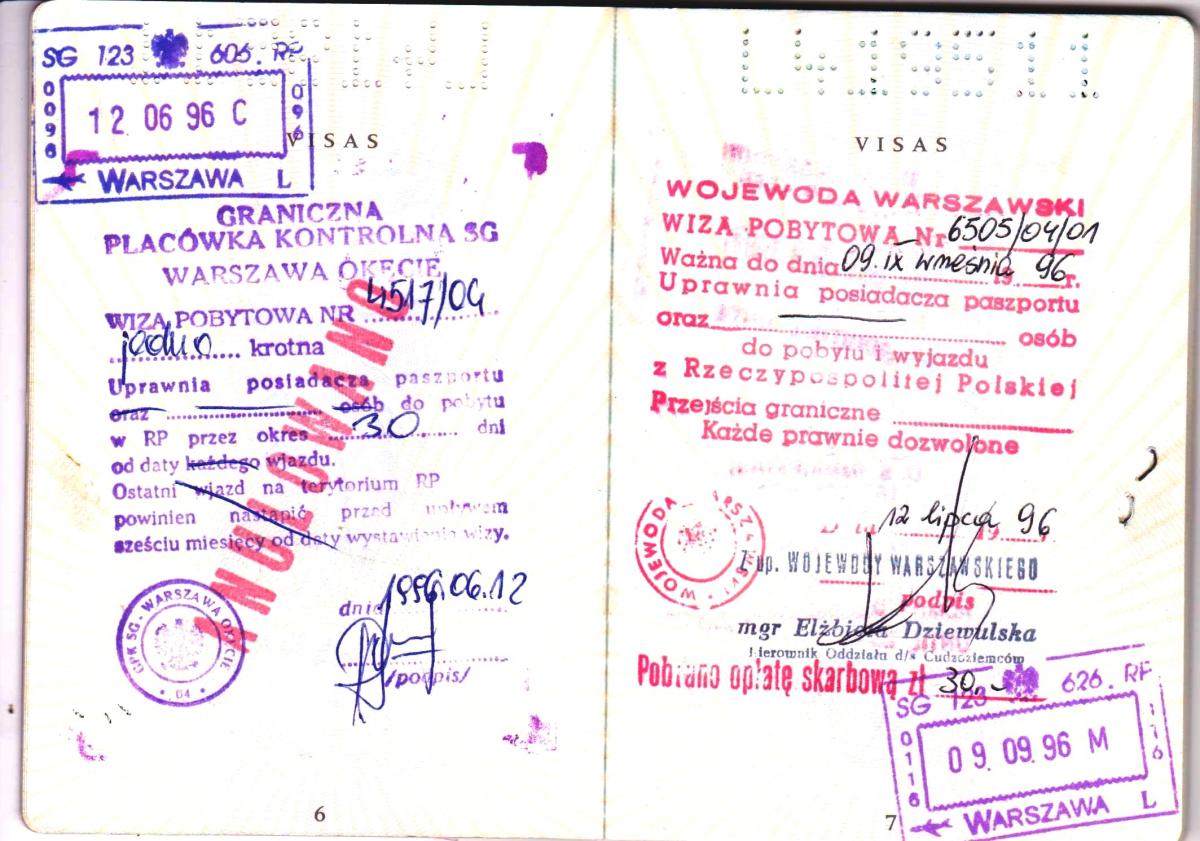 SG 123 606. RP
0096
12 06 96 C
096
WARSZAWA L
VISAS
GRANICZNA
PLACÓWKA KONTROLNA SG
WARSZAWA OKĘCIE
WIZA POBYTOWA NR 4517/04
jedno krotna
Uprawnia posiadacza paszportu
oraz osób do pobytu
w RP przez okres 30 dni
od daty każdego wjazdu.
Ostatni wjazd na terytorium RP
powinien nastąpić przed upływem
sześciu miesięcy od daty wystawienia wizy.
ANULOWANO
GPK SG. WARSZAWA OKĘCIE
04
dnia 1996.06.12
/podpis/
6
L419511
VISAS
WOJEWODA WARSZAWSKI
WIZA POBYTOWA Nr 6505/04/01
Ważna do dnia 09.IX września 1996 r.
Uprawnia posiadacza paszportu
oraz osób
do pobytu i wyjazdu
z Rzeczypospolitej Polskiej
Przejścia graniczne
Każde prawnie dozwolone
WOJEWODA WARSZAWSKI
12 lipca 1996
Z up. WOJEWODY WARSZAWSKIEGO
podpis
mgr Elżbieta Dziewulska
Kierownik Oddziału d/s Cudzoziemców
Pobrano opłatę skarbową zł 30,-
SG 123 626. RP
0116
09. 09. 96 M
116
WARSZAWA L
7